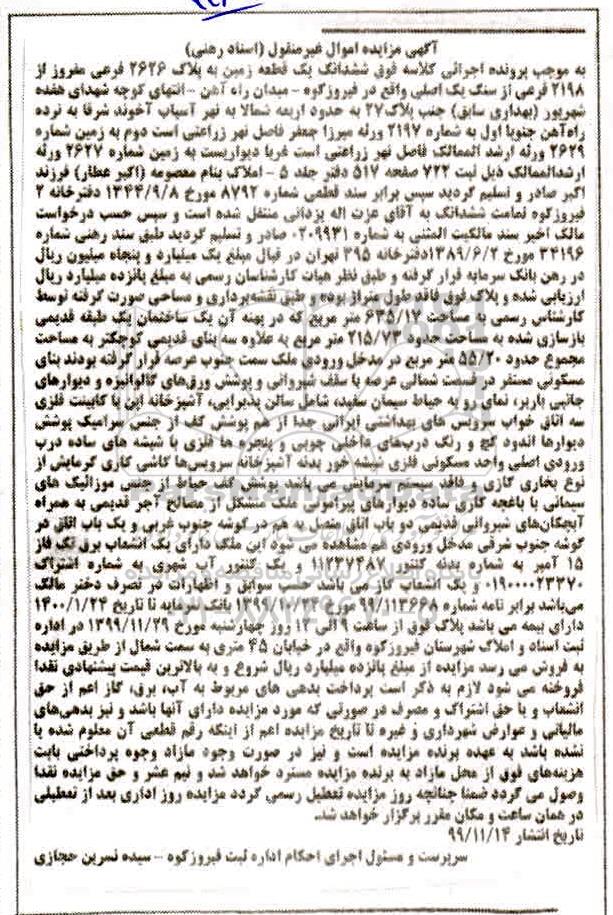 آگهی مزایده اموال غیرمنقول (اسناد رهنی)
به موجب پرونده اجرائی کلاسه فوق ششدانگ یک قطعه زمین به پلاک ۲۶۲۶ فرعی مفروز از
۲۱۹۸ فرعی از سنگ یک اصلی واقع در فیروزکوه - میدان راه آهن - انتهای کوچه شهدای هفده
شهریور (بهداری سابق) جنب پلاک ۲۷ به حدود اربعه شمالا به نهر آسیاب آخوند شرقا به نرده
راه‌آهن جنوبا اول به شماره ۲۱۹۷ ورثه میرزا جعفر فاصل نهر زراعتی است دوم به زمین شماره
۲۶۲۹ ورثه ارشد الممالک فاصل نهر زراعتی است غربا دیواریست به زمین شماره ۲۶۲۷ ورثه
ارشدالممالک ذیل ثبت ۷۲۲ صفحه ۵۱۷ دفتر جلد ۵ - املاک بنام معصومه (اکبر عطار) فرزند
اکبر صادر و تسلیم گردید سپس برابر سند قطعی شماره ۸۷۹۲ مورخ ۱۳۴۴/۹/۸ دفترخانه ۲
فیروزکوه تمامت ششدانگ به آقای عزت اله یزدانی منتقل شده است و سپس حسب درخواست
مالک اخیر سند مالکیت المثنی به شماره ۰۲۰۹۹۳۱ صادر و تسلیم گردید طبق سند رهنی شماره
۳۴۱۹۶ مورخ ۱۳۸۹/۶/۲ دفترخانه ۳۹۵ تهران در قبال مبلغ یک میلیارد و پنجاه میلیون ریال
در رهن بانک سرمایه قرار گرفته و طبق نظر هیات کارشناسان رسمی به مبلغ پانزده میلیارد ریال
ارزیابی شده و پلاک فوق فاقد طول متراژ بوده و طبق نقشه‌برداری و مساحی صورت گرفته توسط
کارشناس رسمی به مساحت ۶۳۵/۱۷ متر مربع که در پهنه آن یک ساختمان یک طبقه قدیمی
بازسازی شده به مساحت حدود ۲۱۵/۷۳ متر مربع به علاوه سه بنای قدیمی کوچکتر به مساحت
مجموع حدود ۵۵/۲۰ متر مربع در مدخل ورودی ملک سمت جنوب عرصه قرار گرفته بودند بنای
مسکونی مستقر در قسمت شمالی عرصه با سقف شیروانی و پوشش ورق‌های گالوانیزه و دیوارهای
جانبی باربر، نمای رو به حیاط سیمان سفید، شامل سالن پذیرایی، آشپزخانه اپن با کابینت فلزی
سه اتاق خواب سرویس های بهداشتی ایرانی جدا از هم پوشش کف از جنس سرامیک پوشش
دیوارها اندود گچ و رنگ درب‌های داخلی چوبی و پنجره ها فلزی با شیشه های ساده درب
ورودی اصلی واحد مسکونی فلزی شیشه خور بدنه آشپزخانه سرویس‌ها کاشی کاری گرمایش از
نوع بخاری گازی و فاقد سیستم سرمایش می باشد پوشش کف حیاط از جنس موزائیک های
سیمانی با باغچه کاری ساده دیوارهای پیرامونی ملک متشکل از مصالح آجر قدیمی به همراه
آبچکان‌های شیروانی قدیمی دو باب اتاق متصل به هم در گوشه جنوب غربی و یک باب اتاق در
گوشه جنوب شرقی مدخل ورودی هم مشاهده می شود این ملک دارای یک انشعاب برق تک فاز
۱۵ آمپر به شماره بدنه کنتور ۱۱۲۳۷۴۸۷ و یک کنتور آب شهری به شماره اشتراک
۰۱۹۰۰۰۰۲۳۳۷۰ و یک انشعاب گاز می باشد حسب سوابق و اظهارات در تصرف دختر مالک
می‌باشد برابر نامه شماره ۹۹/۱۱۳۶۶۸ مورخ ۱۳۹۹/۱۰/۲۴ بانک سرمایه تا تاریخ ۱۴۰۰/۱/۲۴
دارای بیمه می باشد پلاک فوق از ساعت ۹ الی ۱۲ روز چهارشنبه مورخ ۱۳۹۹/۱۱/۲۹ در اداره
ثبت اسناد و املاک شهرستان فیروزکوه واقع در خیابان ۴۵ متری به سمت شمال از طریق مزایده
به فروش می رسد مزایده از مبلغ پانزده میلیارد ریال شروع و به بالاترین قیمت پیشنهادی نقدا
فروخته می شود لازم به ذکر است پرداخت بدهی های مربوط به آب، برق، گاز اعم از حق
انشعاب و یا حق اشتراک و مصرف در صورتی که مورد مزایده دارای آنها باشد و نیز بدهی‌های
مالیاتی و عوارض شهرداری و غیره تا تاریخ مزایده اعم از اینکه رقم قطعی آن معلوم شده یا
نشده باشد به عهده برنده مزایده است و نیز در صورت وجود مازاد وجوه پرداختی بابت
هزینه‌های فوق از محل مازاد به برنده مزایده مسترد خواهد شد و نیم عشر و حق مزایده نقدا
وصول می گردد ضمنا چنانچه روز مزایده تعطیل رسمی گردد مزایده روز اداری بعد از تعطیلی
در همان ساعت و مکان مقرر برگزار خواهد شد.
تاریخ انتشار ۹۹/۱۱/۱۴
سرپرست و مسئول اجرای احکام اداره ثبت فیروزکوه - سیده نسرین حجازی